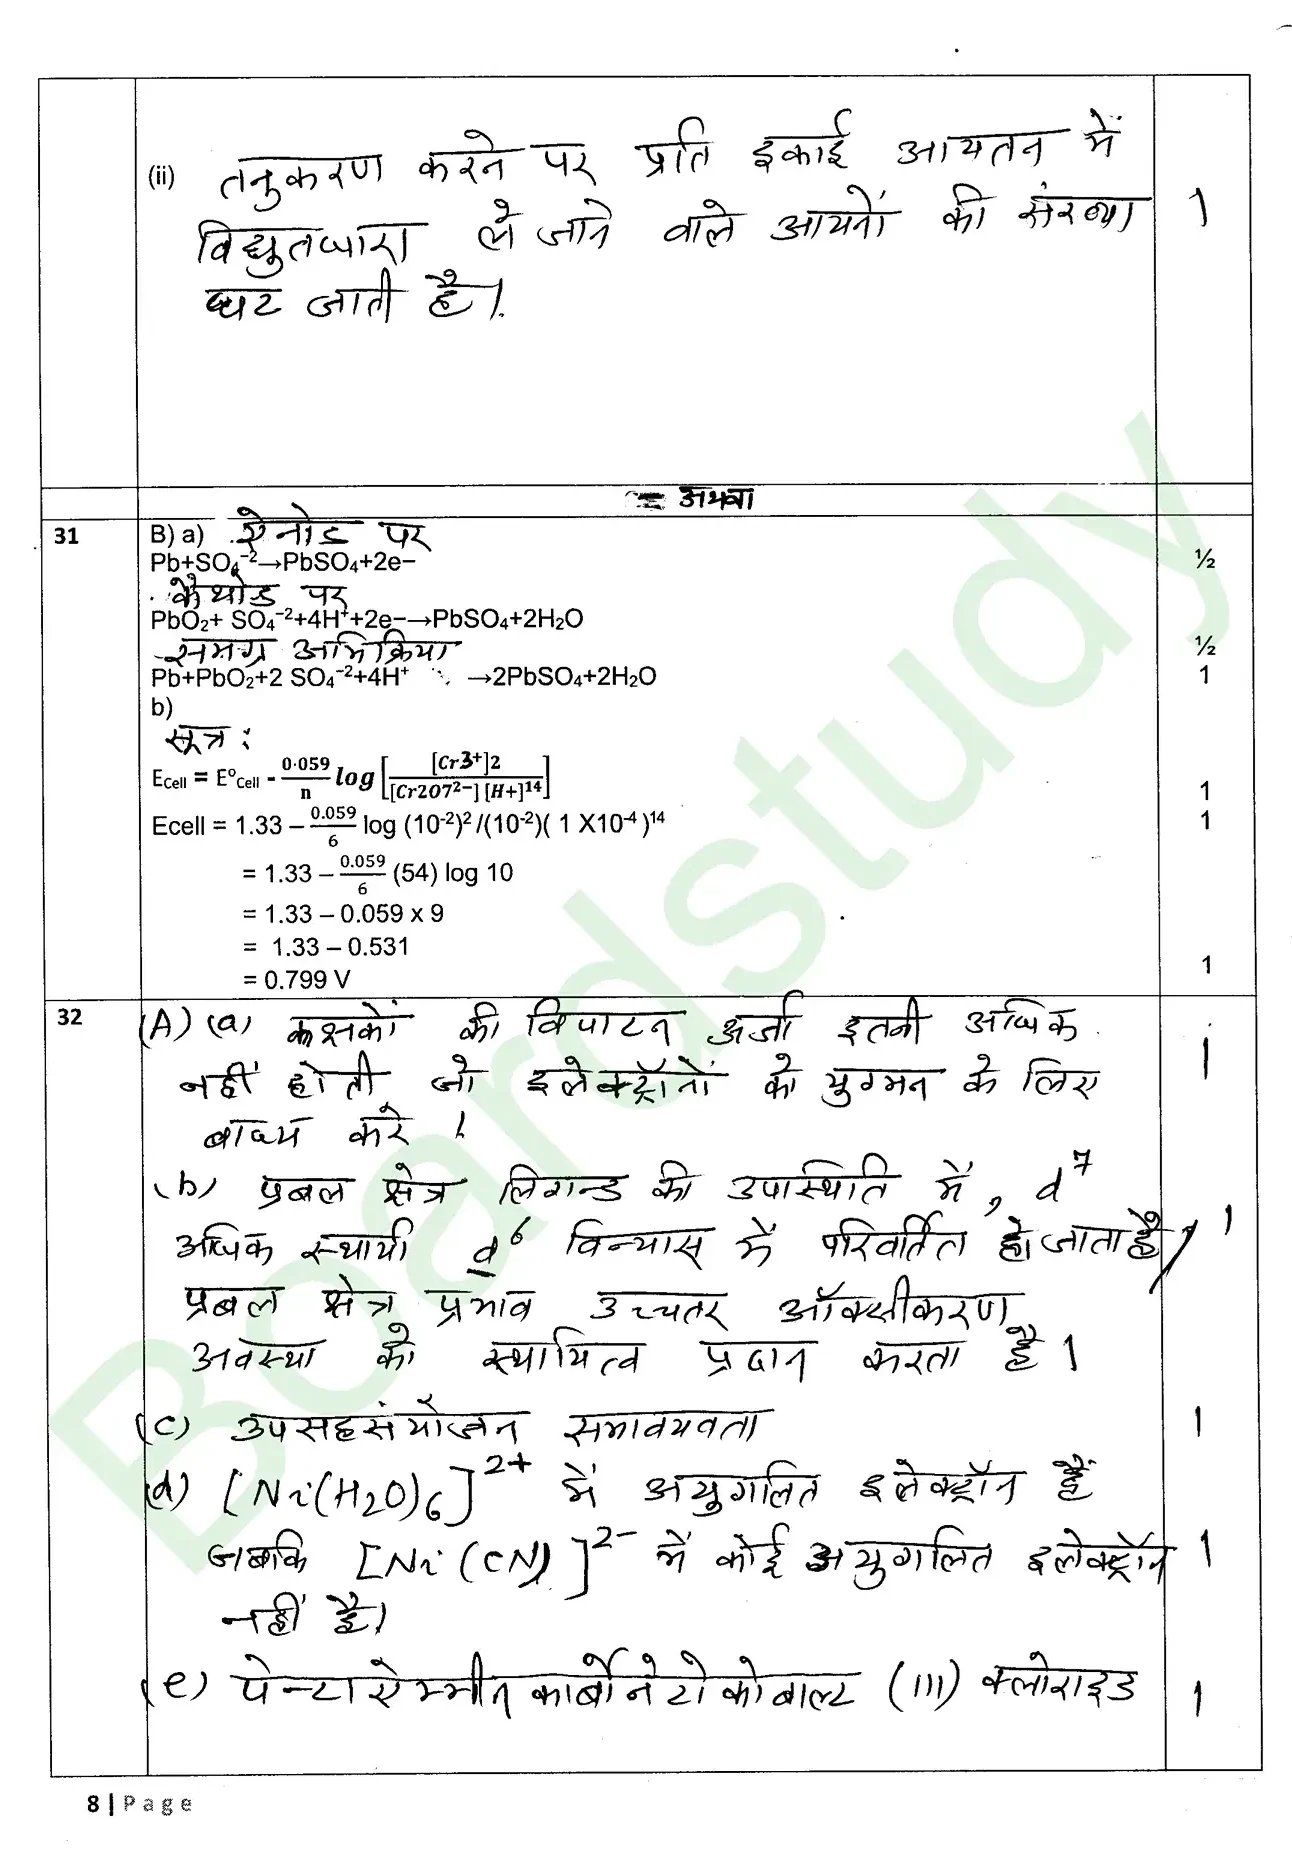 (ii) तनुकरण करने पर प्रति इकाई आयतन में
विद्युतधारा ले जाने वाले आयनों की संख्या 1
घट जाती है।
अथवा
31 B) a) ऐनोड पर
Pb+SO₄⁻²→PbSO₄+2e− ½
कैथोड पर
PbO₂+ SO₄⁻²+4H⁺+2e−→PbSO₄+2H₂O
समग्र अभिक्रिया ½
Pb+PbO₂+2 SO₄⁻²+4H⁺ →2PbSO₄+2H₂O 1
b)
सूत्र :
E_Cell = E°_Cell - 0·059/n log [[Cr3⁺]2/[Cr2O7²⁻] [H+]¹⁴] 1
Ecell = 1.33 – 0.059/6 log (10⁻²)² /(10⁻²)( 1 X10⁻⁴ )¹⁴ 1
= 1.33 – 0.059/6 (54) log 10
= 1.33 – 0.059 x 9
= 1.33 – 0.531
= 0.799 V 1
32 (A) (a) कक्षकों की विपाटन ऊर्जा इतनी अधिक 1
नहीं होती जो इलेक्ट्रॉनों को युग्मन के लिए
बाध्य करे ।
(b) प्रबल क्षेत्र लिगन्ड की उपस्थिति में, d⁷
अधिक स्थायी d⁶ विन्यास में परिवर्तित हो जाता है/ 1
प्रबल क्षेत्र प्रभाव उच्चतर ऑक्सीकरण
अवस्था को स्थायित्व प्रदान करता है ।
(c) उपसहसंयोजन समावयवता 1
(d) [Ni(H₂O)₆]²⁺ में अयुगलित इलेक्ट्रॉन हैं
जबकि [Ni(CN)]²⁻ में कोई अयुगलित इलेक्ट्रॉन 1
नहीं है।
(e) पेन्टाऐम्मीनकार्बोनेटोकोबाल्ट (III) क्लोराइड 1
8 | Page
Boardstudy